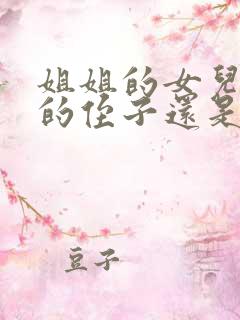 姐姐的女兒
的侄子還是
豆子